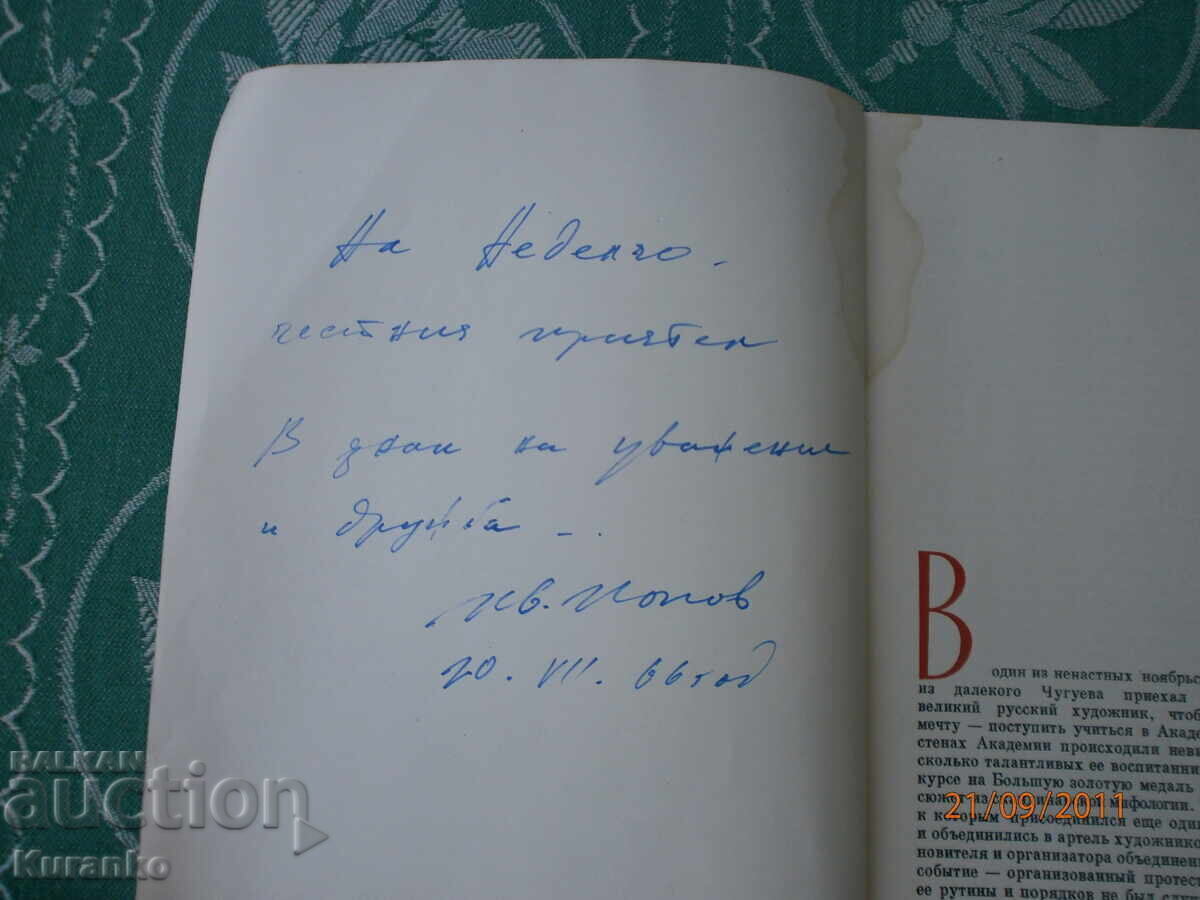 На Неделчо –
честния приятел
В знак на уважение
и дружба – ..
Ив. Попов
20. VII. 66 год
В
один из ненастных ноябрьс
из далекого Чугуева приехал
великий русский художник, чтоб
мечту — поступить учиться в Акаде
стенах Академии происходили неви
сколько талантливых ее воспитанни
курсе на Большую золотую медаль
к которым присоединился еще один
и объединились в артель художнико
новителя и организатора объединен
событие — организованный протест
ее рутины и порядков не был случ
21/09/2011
BALKAN
auction
Kuranko